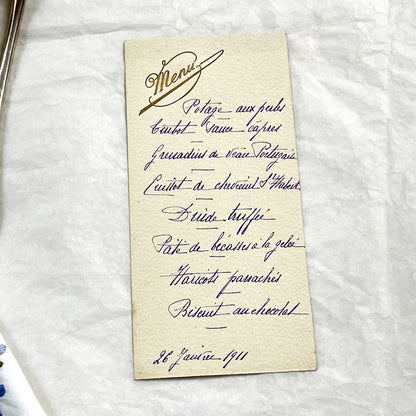 Menu
Potage aux perles
Turbot sauce câpres
Grenadins de veau Portugais
Cuissot de chevreuil St Hubert
Dinde truffée
Pâté de bécasses à la gelée
Haricots panachés
Biscuit au chocolat
26 Janvier 1911